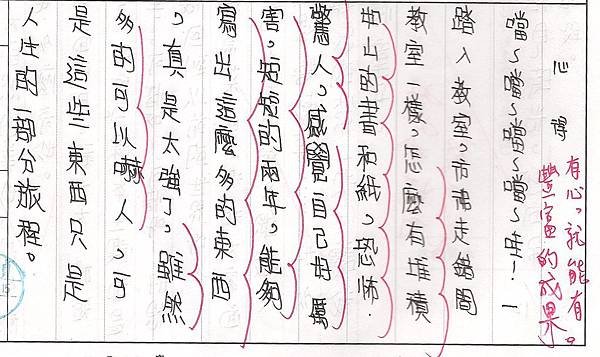 心得
有心,就能有
豐富的成果。
噹~噹~噹~噹~哇!一
踏入教室,走錯間
教室一樣,怎麼有堆積
如山的書和紙,恐怖、
驚人,感覺自己好厲
害,短短的兩年,能夠
寫出這麼多的東西
,真是太強了,雖然
多的可以嚇人,可
是這些東西只是
人生的一部分旅程。